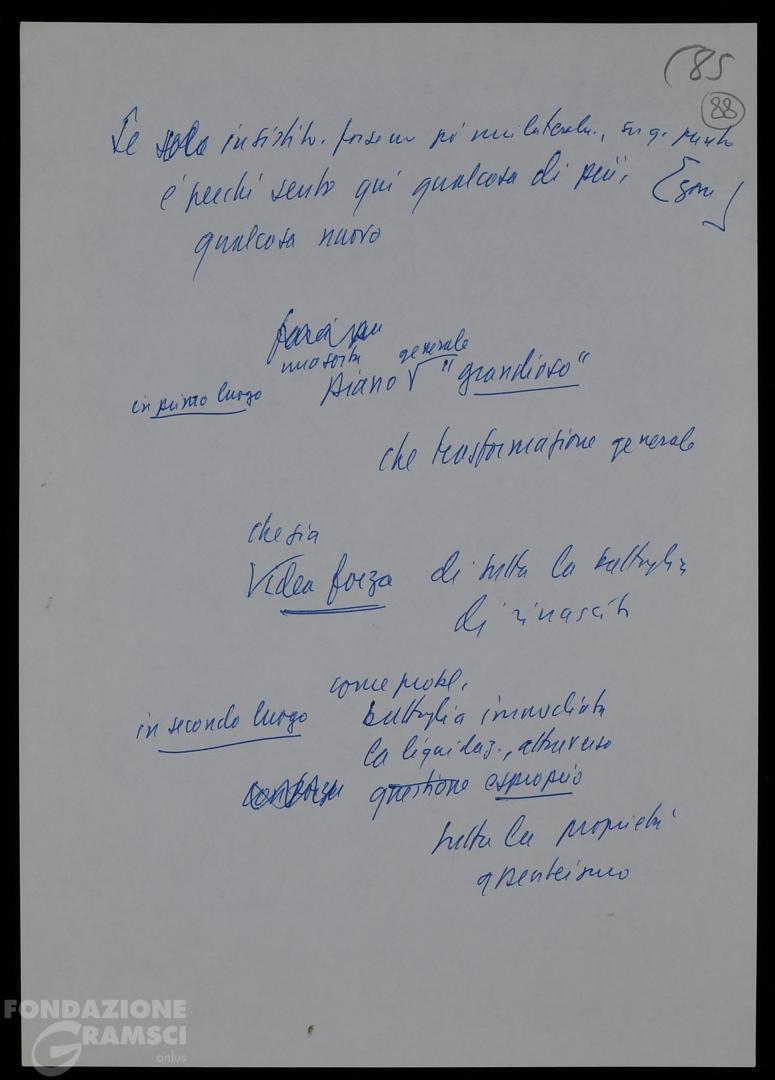 85
88
Se insistito. forse un pò unilateral., su q. punto
è perché sento qui qualcosa di più,
qualcosa nuovo
una sorta generale
in primo luogo piano "grandioso"
che trasformazione generale
che sia
l'idea forza di tutta la battaglia
di rinascita
come probl.
in secondo luogo battaglia immediata
la liquidaz., attraverso
questione esproprio
tutta la proprietà
assenteismo
FONDAZIONE
GRAMSCI
onlus